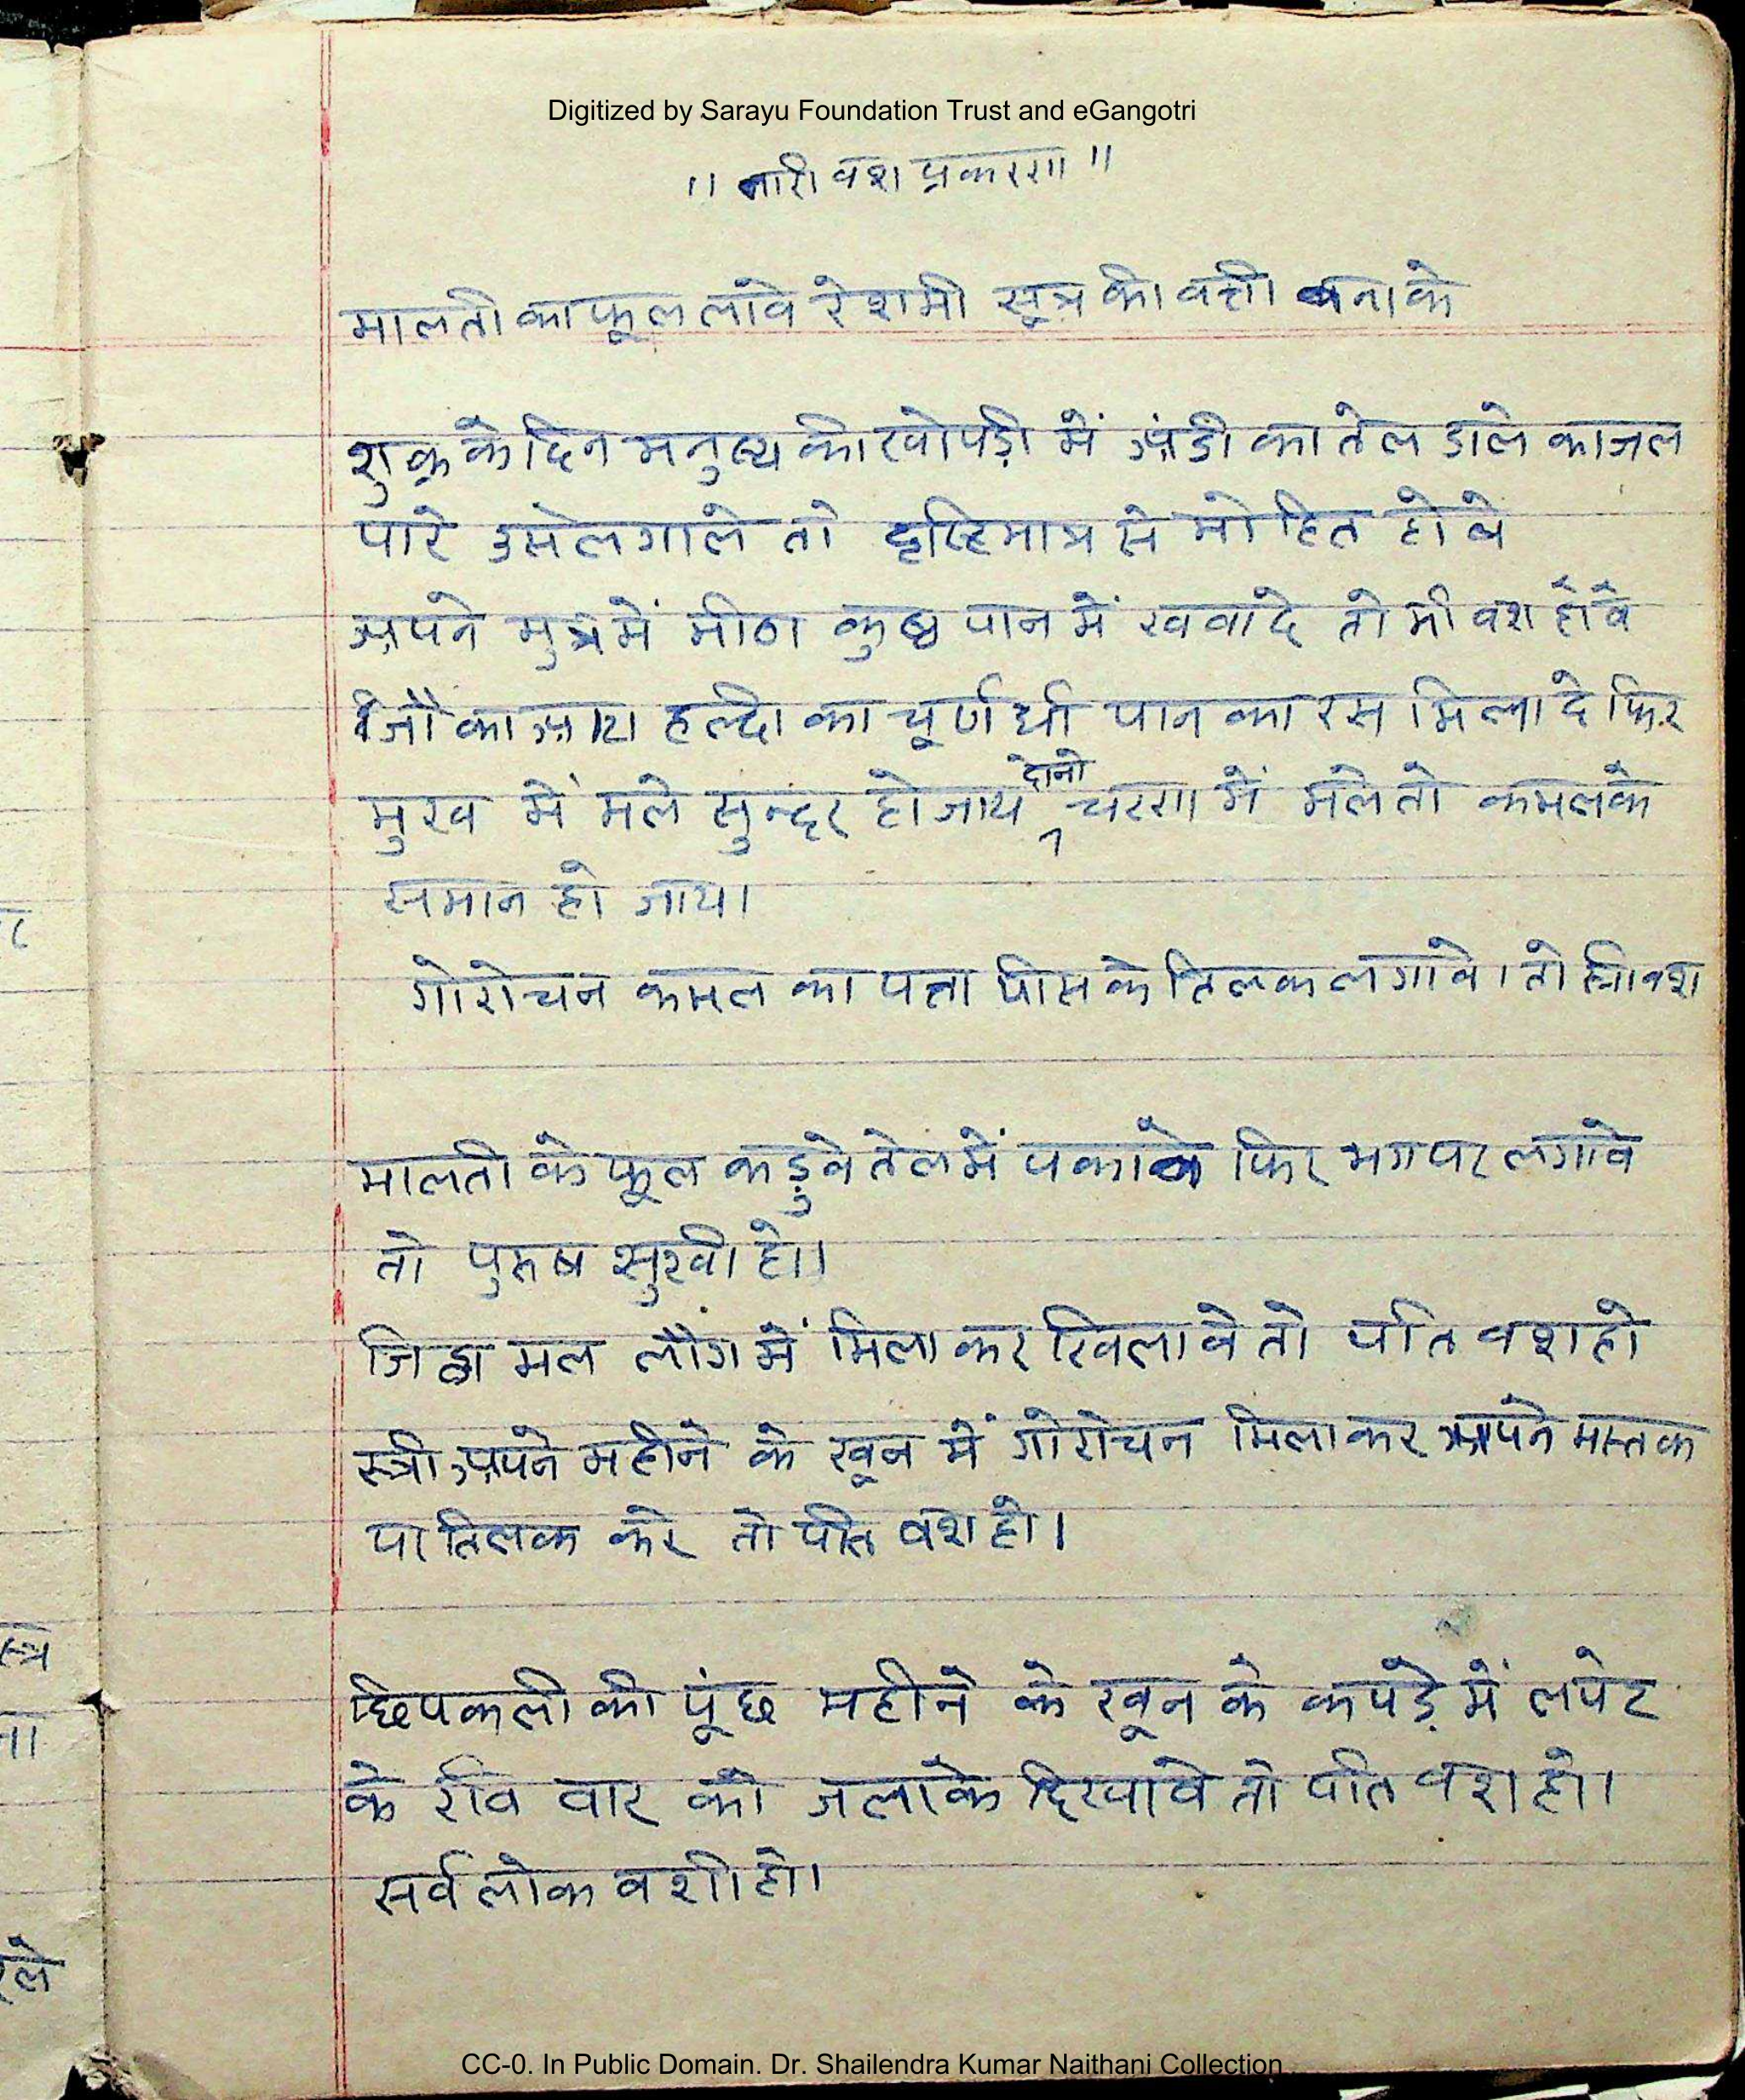 Digitized by Sarayu Foundation Trust and eGangotri
"नारी वश प्रकरण"
मालती का फूल लावे रेशमी सूत्र की वत्ती बनाके
शुक्र के दिन मनुष्य की खोपड़ी में अंडी का तेल डाले काजल
पारे उसे लगाले तो दृष्टिमात्र से मोहित होवे
अपने मुत्र में मीठा कुष्ठ पान में खवादे तो भी वश होवे
जौ का आटा हल्दी का चूर्ण घी पान का रस मिलादे फिर
मुख में मले सुन्दर हो जाय दोनो चरण में मले तो कमल के
समान हो जाय।
गोरोचन कमल का पत्ता पीस के तिलक लगावे। तो स्त्री वश
मालती के फूल कड़ुवे तेल में पकावे फिर भग पर लगावे
तो पुरुष सुखी हो।
जिह्वा मल लौंग में मिलाकर खिलावे तो पति वश हो
स्त्री अपने महीने के खून में गोरोचन मिलाकर अपने मस्तक
पा तिलक करे तो पति वश हो।
छिपकली की पूंछ महीने के खून के कपड़े में लपेट
के रवि वार को जलाके दिखावे तो पति वश हो।
सर्व लोक वशी हो।
स्त्र
ना
रले
CC-0. In Public Domain. Dr. Shailendra Kumar Naithani Collection